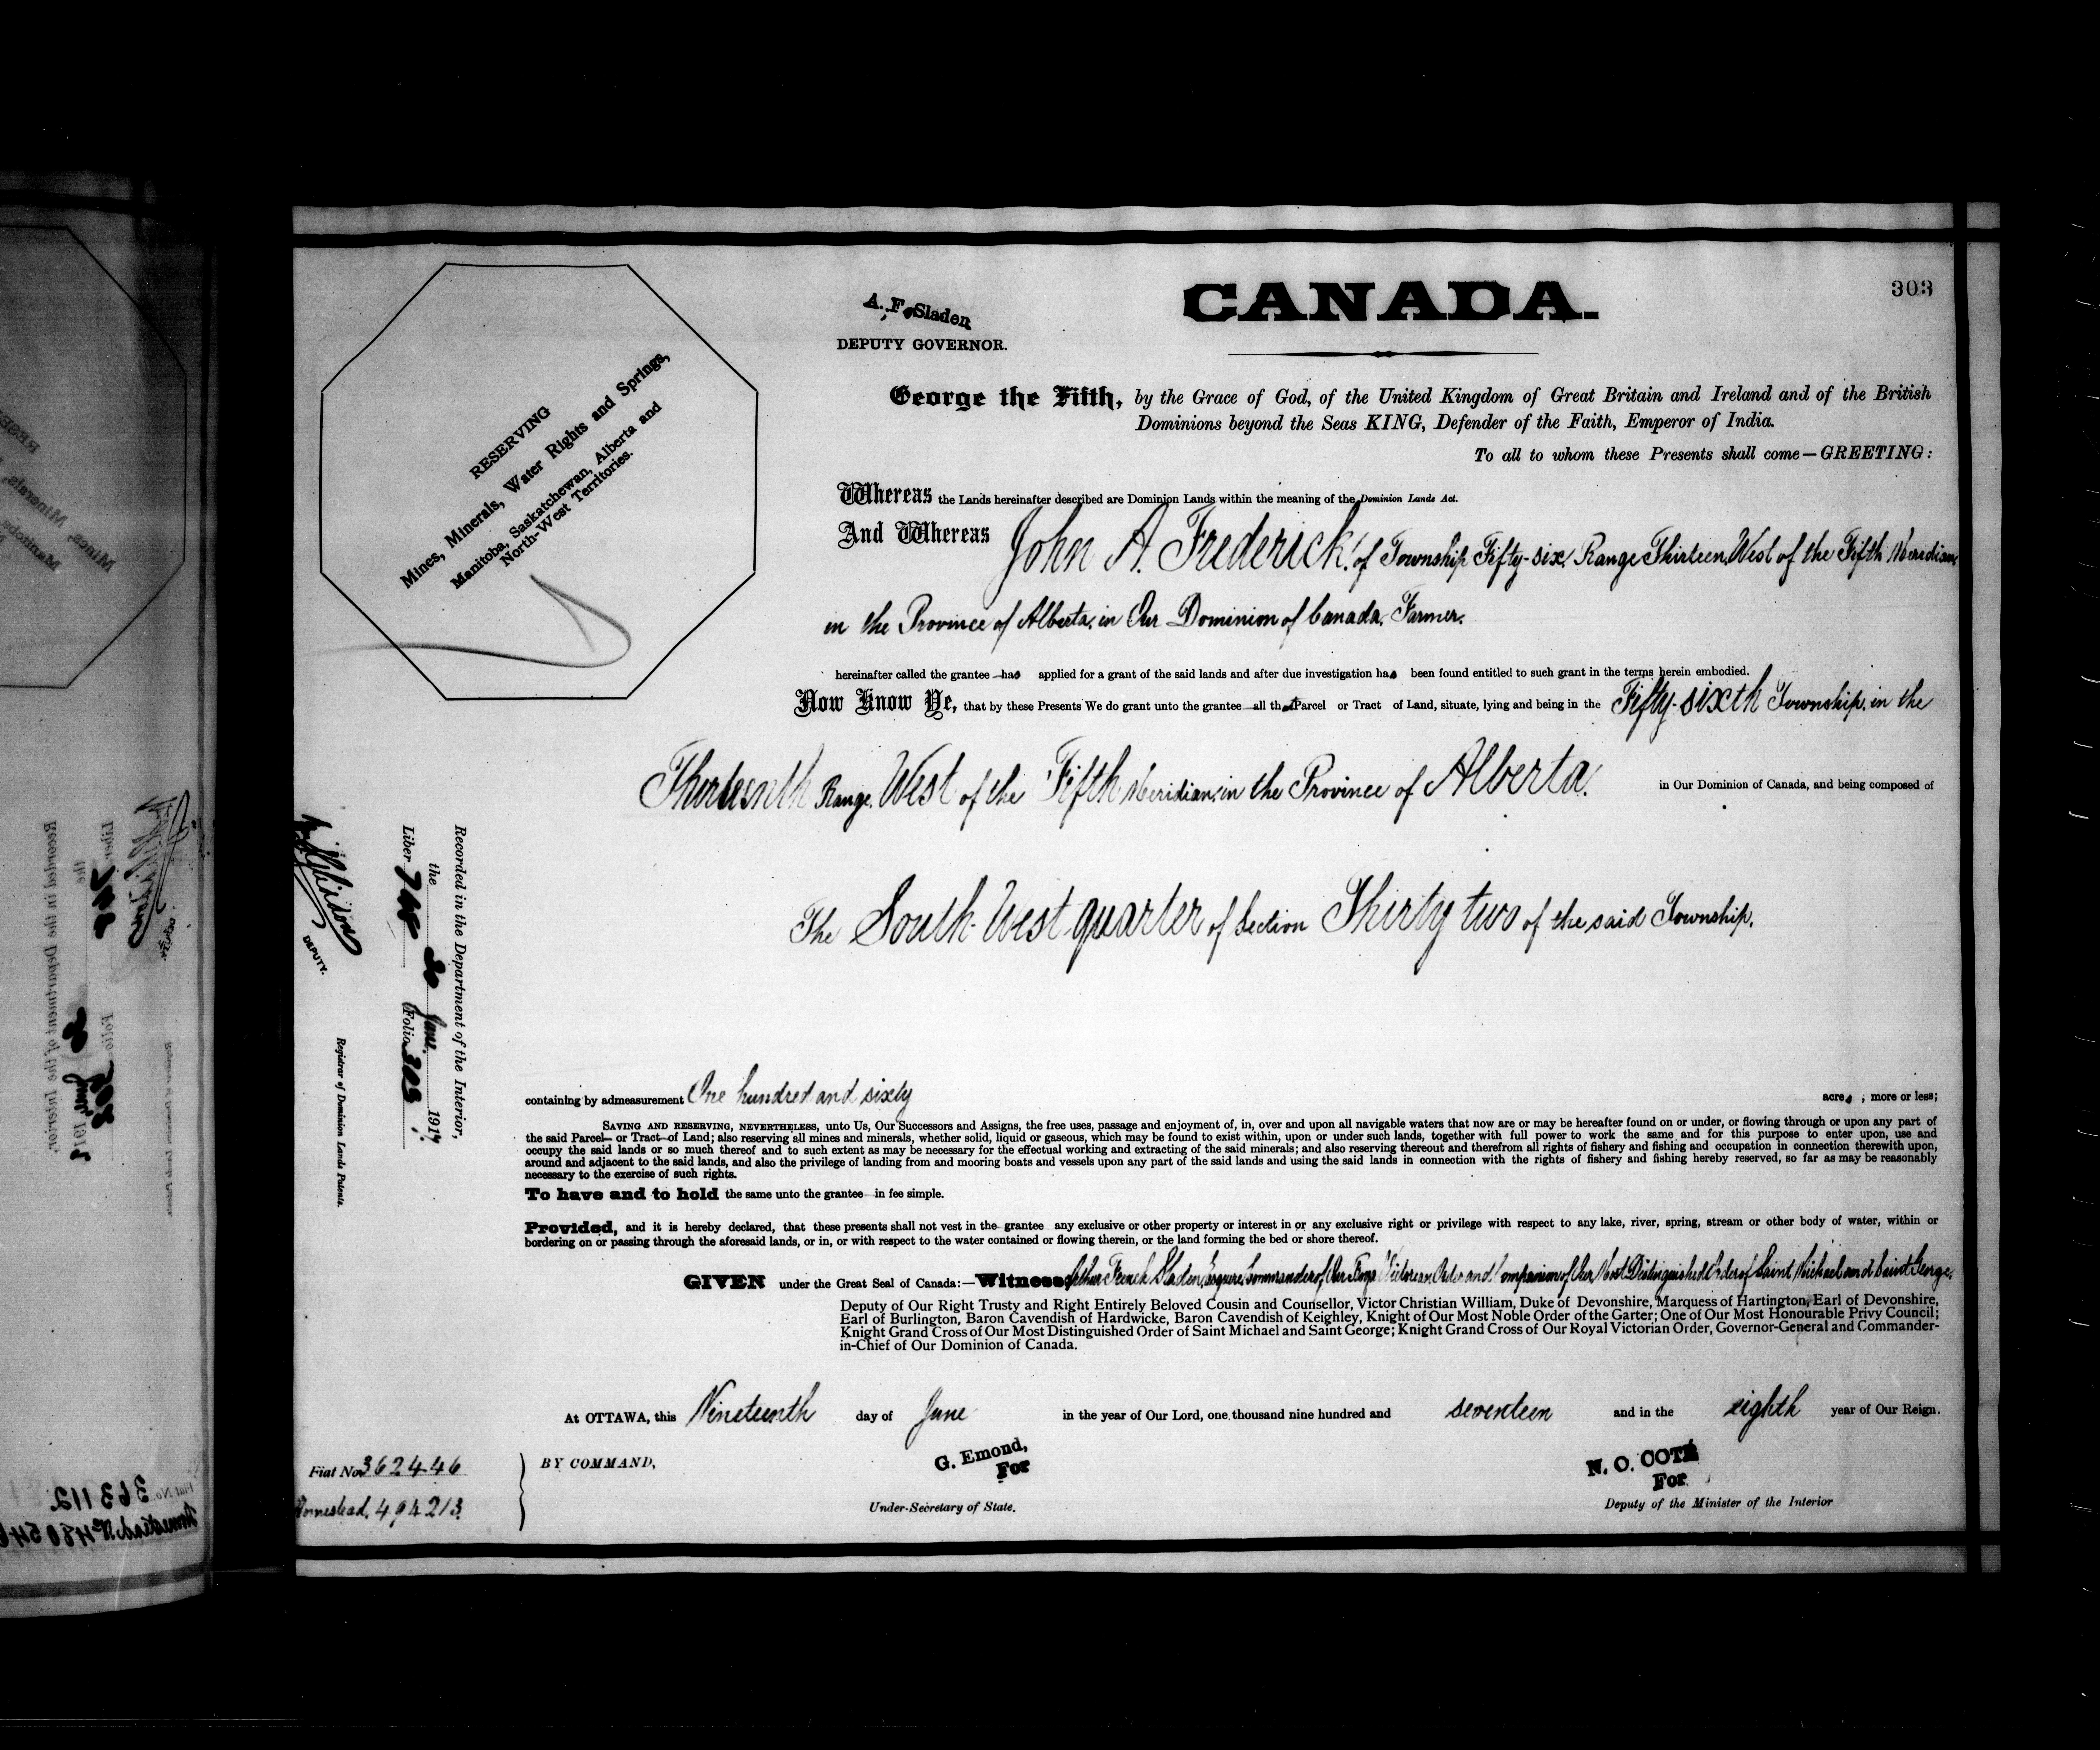 303
CANADA.
A. F. Sladen
DEPUTY GOVERNOR.
RESERVING
Mines, Minerals, Water Rights and Springs,
Manitoba, Saskatchewan, Alberta and
North-West Territories.
George the Fifth, by the Grace of God, of the United Kingdom of Great Britain and Ireland and of the British
Dominions beyond the Seas KING, Defender of the Faith, Emperor of India.
To all to whom these Presents shall come—GREETING:
Whereas the Lands hereinafter described are Dominion Lands within the meaning of the Dominion Lands Act.
And Whereas John A. Frederick, of Township Fifty-six, Range Thirteen, West of the Fifth Meridian
in the Province of Alberta, in Our Dominion of Canada, Farmer.
hereinafter called the grantee has applied for a grant of the said lands and after due investigation has been found entitled to such grant in the terms herein embodied.
Now Know Ye, that by these Presents We do grant unto the grantee all that Parcel or Tract of Land, situate, lying and being in the Fifty-sixth Township, in the
Thirteenth Range, West of the Fifth Meridian, in the Province of Alberta, in Our Dominion of Canada, and being composed of
The South-West quarter of Section Thirty two of the said Township.
Recorded in the Department of the Interior,
the 30 June. 1917
Liber 748 Folio 303
DEPUTY.
Registrar of Dominion Lands Patents.
containing by admeasurement One hundred and sixty acres ; more or less;
SAVING AND RESERVING, NEVERTHELESS, unto Us, Our Successors and Assigns, the free uses, passage and enjoyment of, in, over and upon all navigable waters that now are or may be hereafter found on or under, or flowing through or upon any part of
the said Parcel or Tract of Land; also reserving all mines and minerals, whether solid, liquid or gaseous, which may be found to exist within, upon or under such lands, together with full power to work the same and for this purpose to enter upon, use and
occupy the said lands or so much thereof and to such extent as may be necessary for the effectual working and extracting of the said minerals; and also reserving thereout and therefrom all rights of fishery and fishing and occupation in connection therewith upon,
around and adjacent to the said lands, and also the privilege of landing from and mooring boats and vessels upon any part of the said lands and using the said lands in connection with the rights of fishery and fishing hereby reserved, so far as may be reasonably
necessary to the exercise of such rights.
To have and to hold the same unto the grantee in fee simple.
Provided, and it is hereby declared, that these presents shall not vest in the grantee any exclusive or other property or interest in or any exclusive right or privilege with respect to any lake, river, spring, stream or other body of water, within or
bordering on or passing through the aforesaid lands, or in, or with respect to the water contained or flowing therein, or the land forming the bed or shore thereof.
GIVEN under the Great Seal of Canada:—Witness Arthur French Sladen, Esquire, Commander of Our Royal Victorian Order and Companion of Our Most Distinguished Order of Saint Michael and Saint George,
Deputy of Our Right Trusty and Right Entirely Beloved Cousin and Counsellor, Victor Christian William, Duke of Devonshire, Marquess of Hartington, Earl of Devonshire,
Earl of Burlington, Baron Cavendish of Hardwicke, Baron Cavendish of Keighley, Knight of Our Most Noble Order of the Garter; One of Our Most Honourable Privy Council;
Knight Grand Cross of Our Most Distinguished Order of Saint Michael and Saint George; Knight Grand Cross of Our Royal Victorian Order, Governor-General and Commander-
in-Chief of Our Dominion of Canada.
At OTTAWA, this Nineteenth day of June in the year of Our Lord, one thousand nine hundred and seventeen and in the eighth year of Our Reign.
Fiat No 362446
Homestead, 494213
BY COMMAND,
G. Emond,
For
Under-Secretary of State.
N. O. COTÉ
For
Deputy of the Minister of the Interior